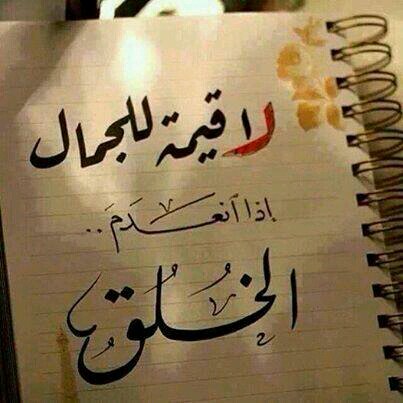 لا قيمة للجمال
إذا ٱنعـدَمَ..
الخُـلُق